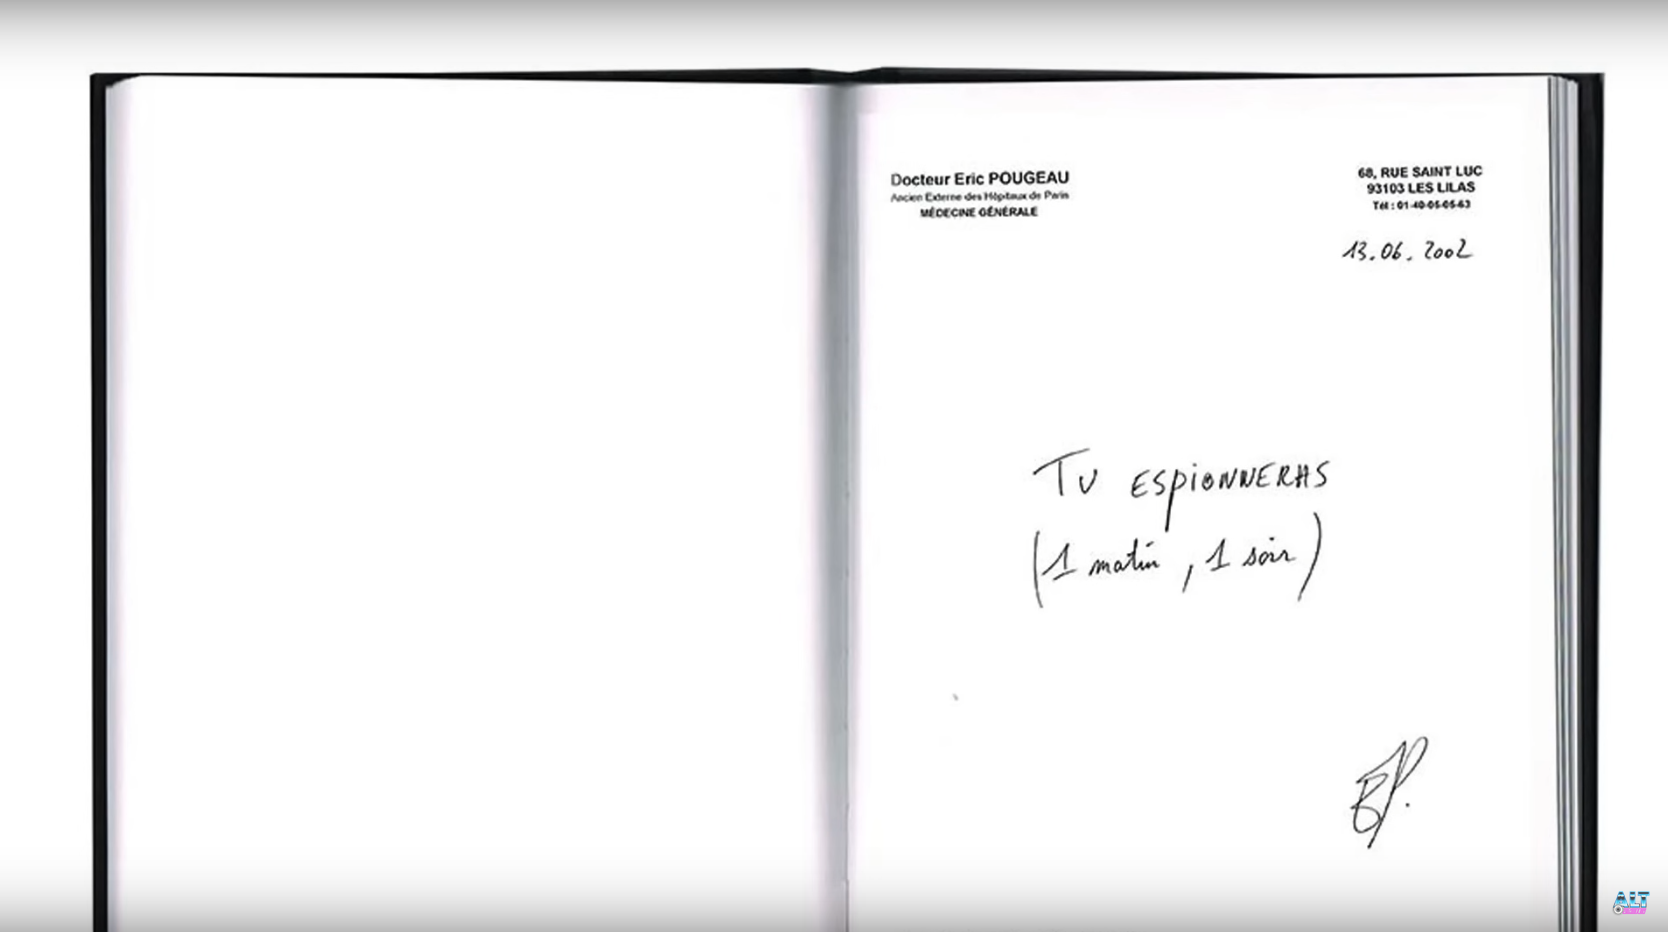 Docteur Eric POUGEAU
Ancien Externe des Hôpitaux de Paris
MÉDECINE GÉNÉRALE
68, RUE SAINT LUC
93103 LES LILAS
Tél : 01-40-05-05-63
13.06.2002
TU ESPIONNERAS
(1 matin, 1 soir)
EP.
ALT